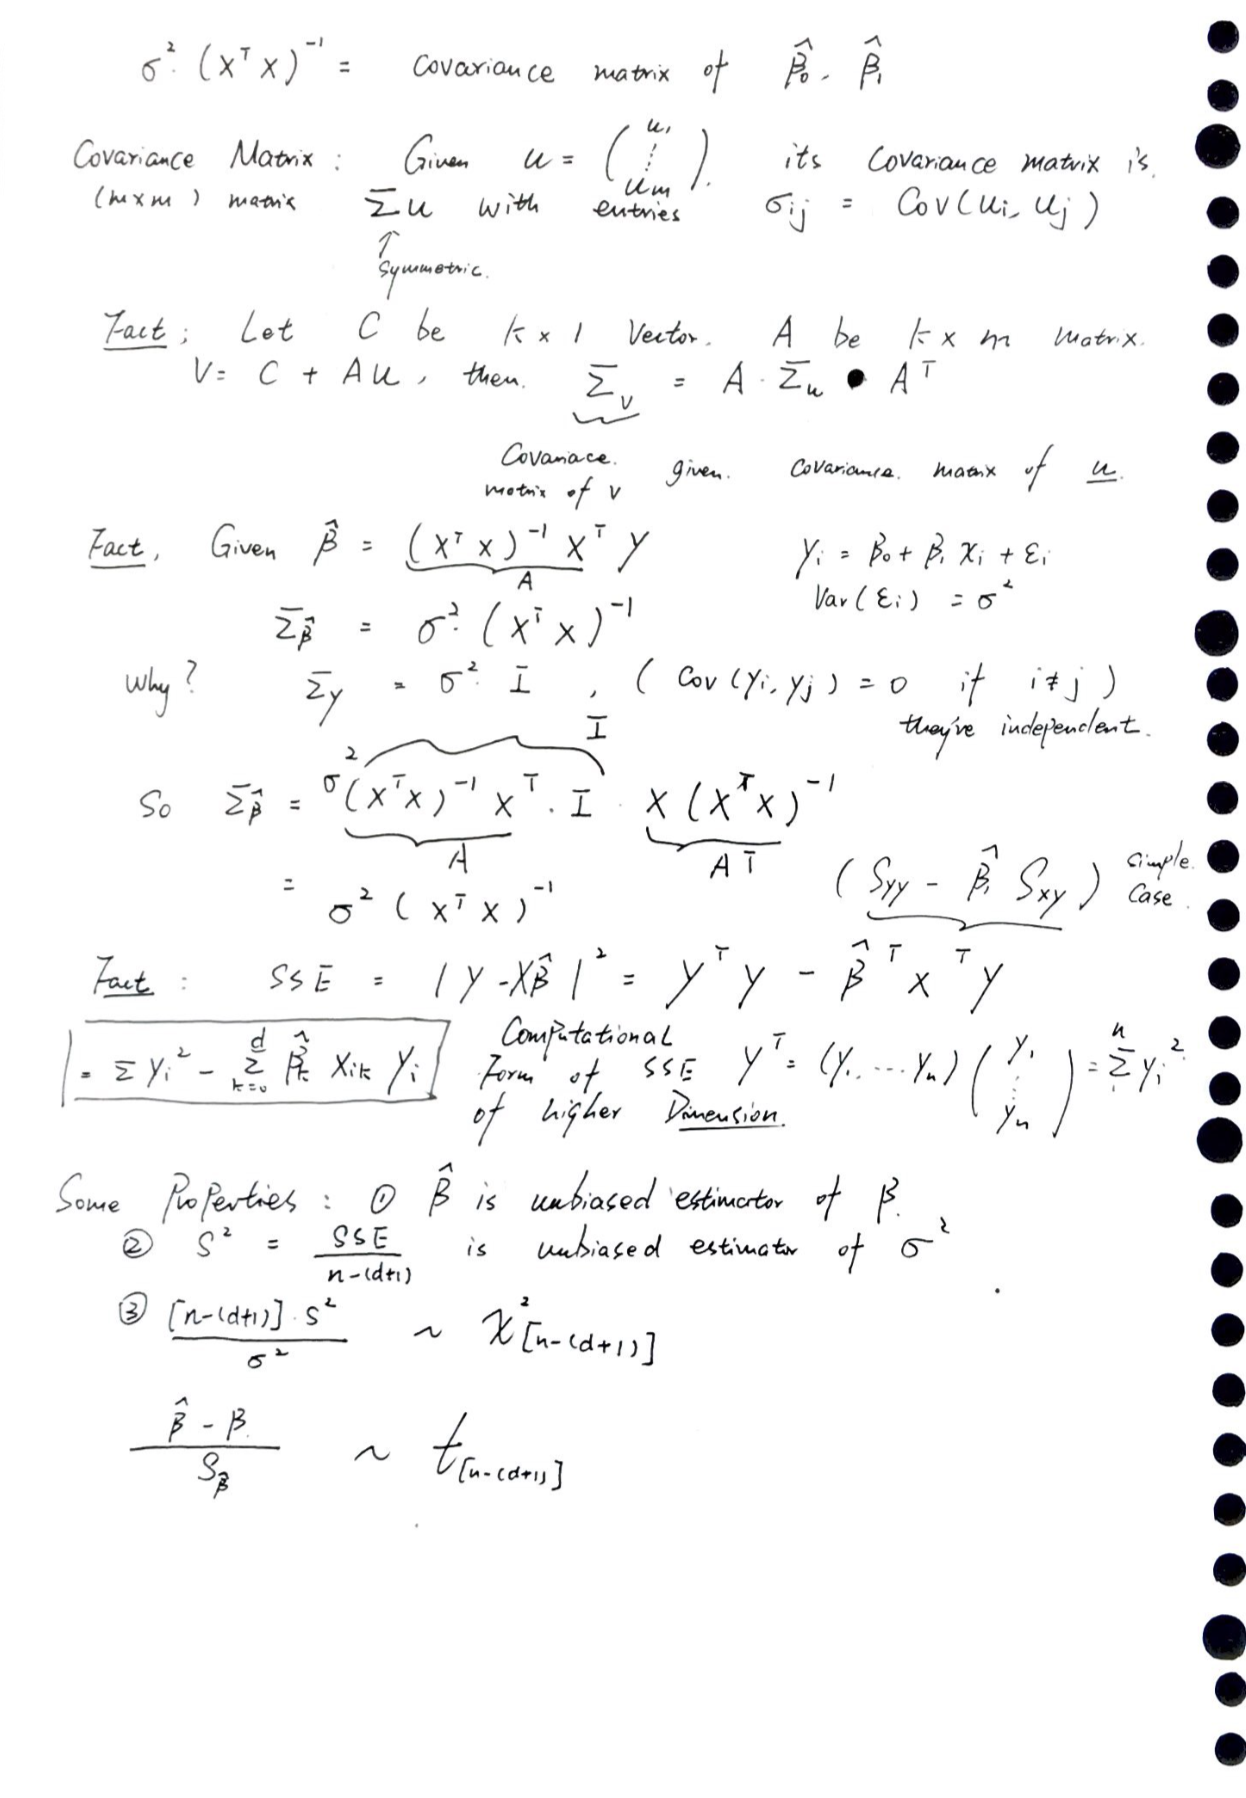 σ². (XᵀX)⁻¹ = covariance matrix of β̂₀. β̂₁
Covariance Matrix : Given u = (u₁ ⋮ um). its covariance matrix is.
(m×m) matrix Σu with entries σij = Cov(ui, uj)
↑
symmetric.
Fact ; Let C be k×1 Vector. A be k×m matrix.
V = C + Au, then. Σv = A · Σu • Aᵀ
Covariace. given. covariance. matrix of u.
matrix of v
Fact, Given β̂ = (XᵀX)⁻¹Xᵀ Y yi = β₀ + β₁ xi + εi
A Var(εi) = σ²
Σβ̂ = σ². (XᵀX)⁻¹
Why? Σy = σ². I , ( Cov(yi, yj) = 0 if i≠j )
I they've independent.
So Σβ̂ = σ²(XᵀX)⁻¹Xᵀ. I · X(XᵀX)⁻¹
A Aᵀ
= σ²(XᵀX)⁻¹ (Syy - β̂₁ Sxy) simple. case.
Fact : SSE = |Y - Xβ̂|² = YᵀY - β̂ᵀXᵀY
= Σyi² - Σ_{k=0}^{d} β̂k Xik Yi Computational Form of SSE of higher Dimension. Yᵀ = (y₁. ... yn)(y₁ ⋮ yn) = Σⁿyi²
Some Properties : ① β̂ is unbiased estimator of β.
② S² = SSE / n-(d+1) is unbiased estimator of σ²
③ [n-(d+1)]·S² / σ² ~ χ²[n-(d+1)]
β̂ - β / Sβ̂ ~ t[n-(d+1)]